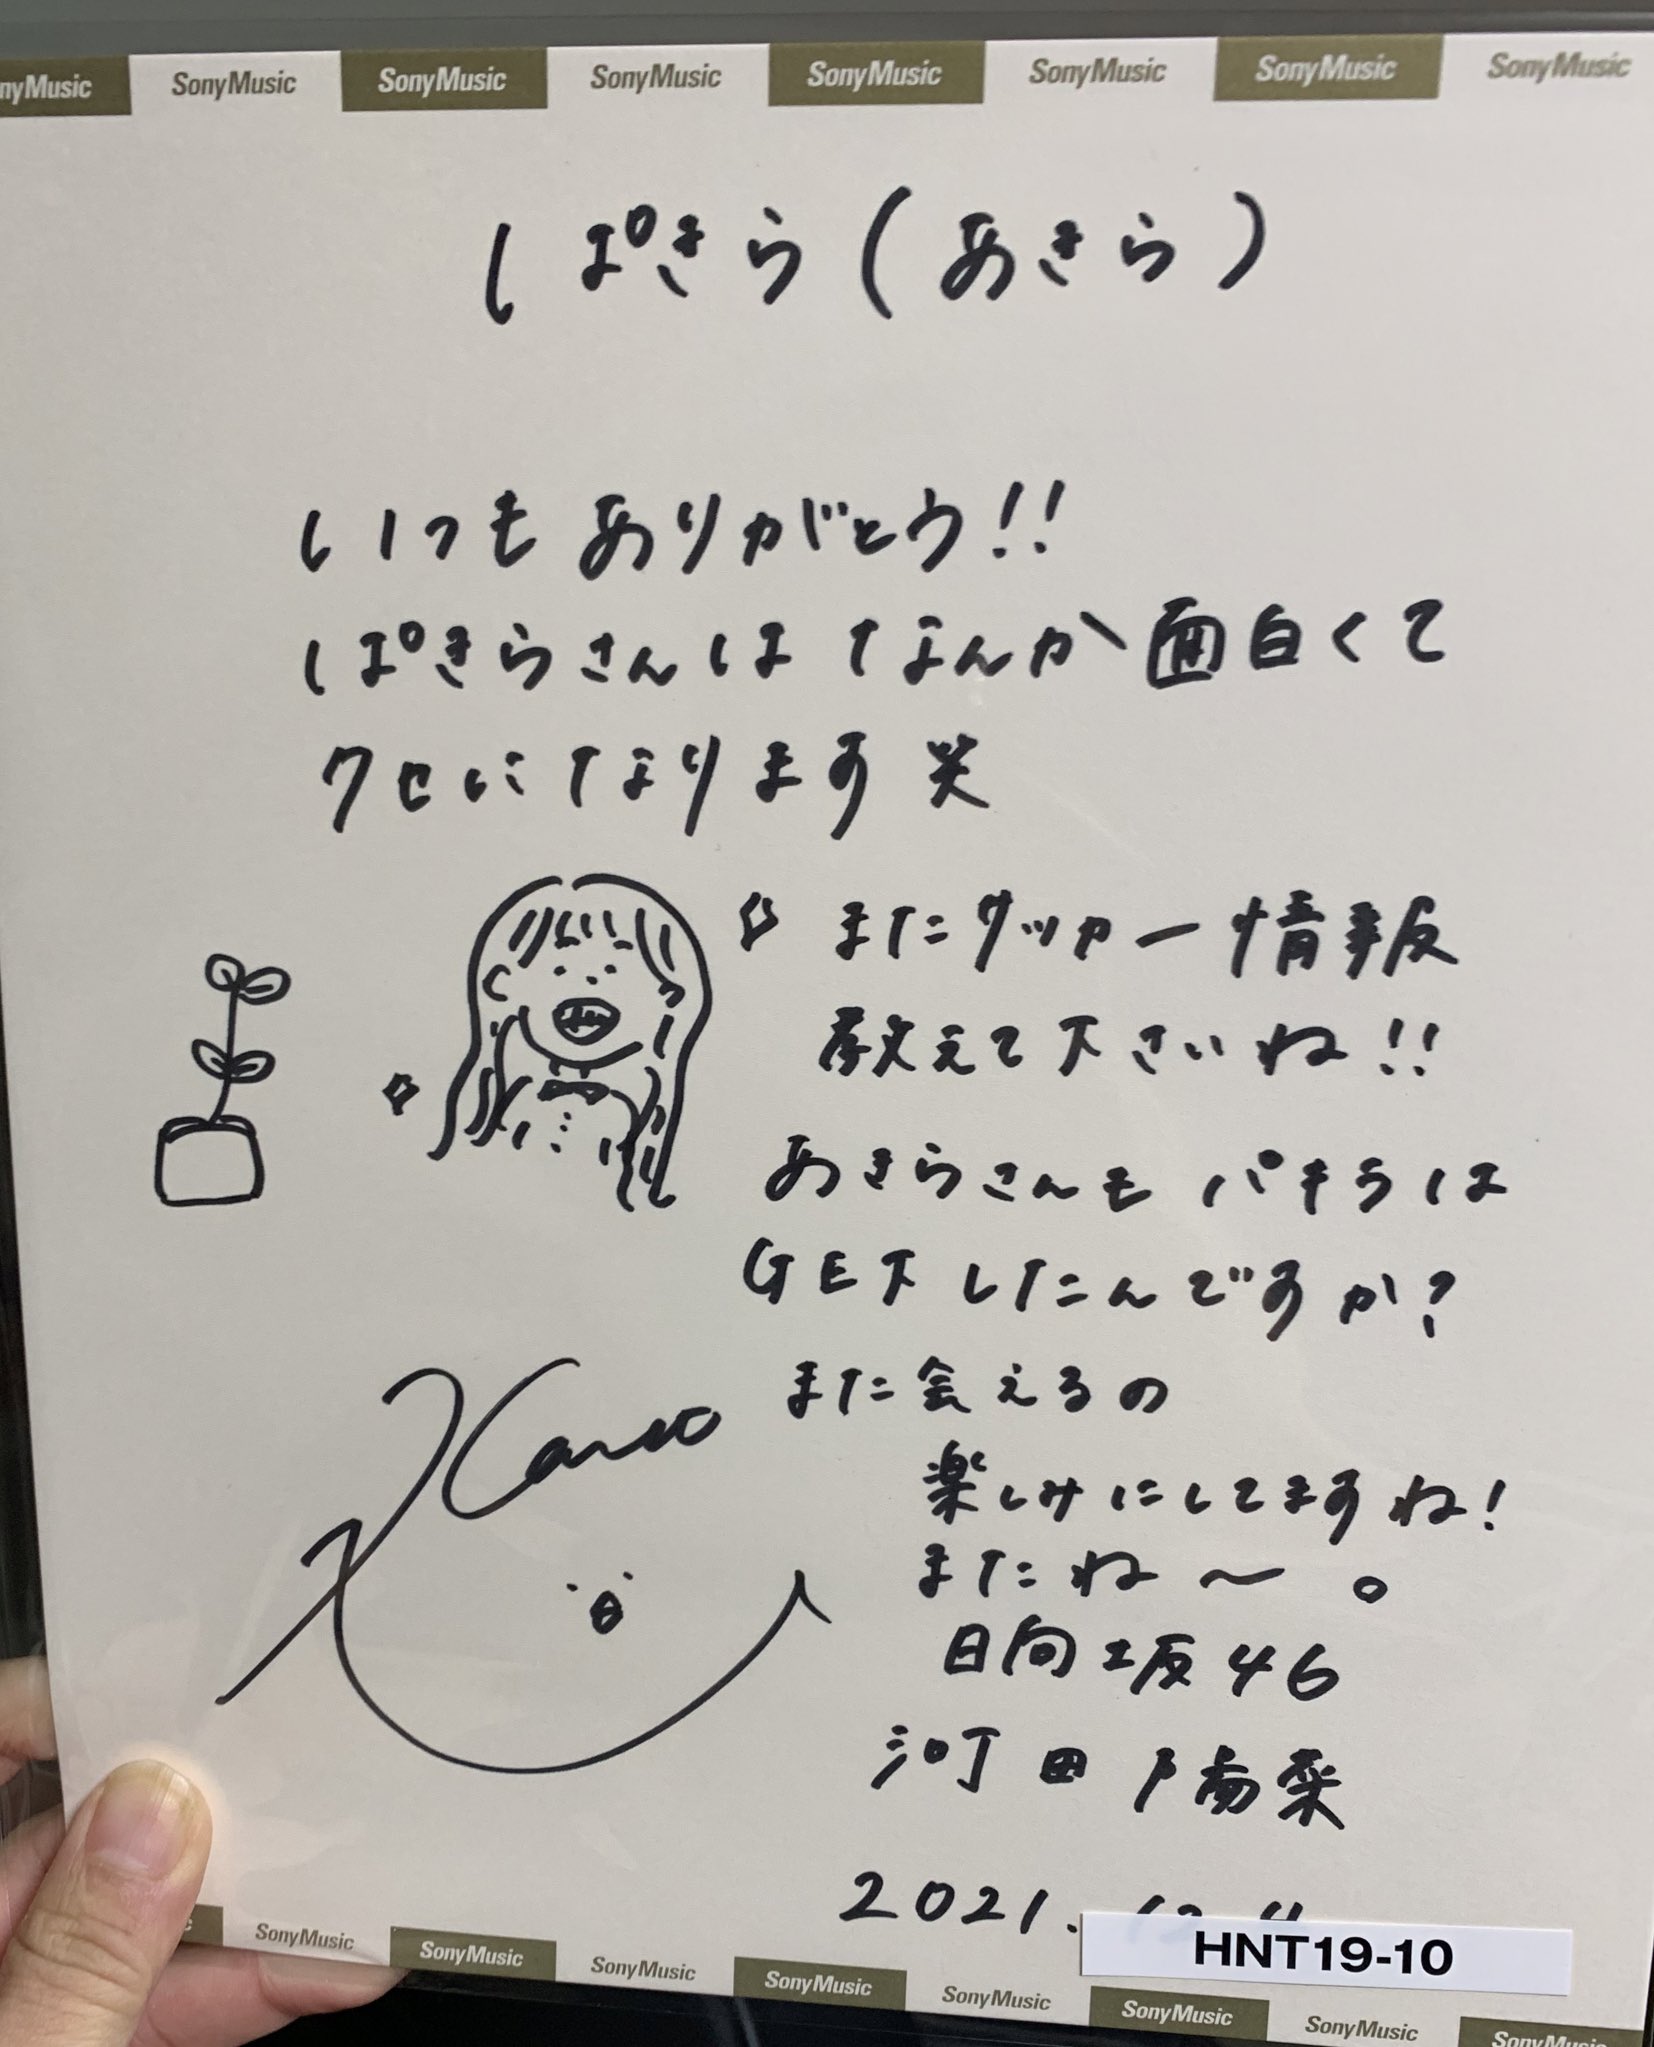 nyMusic SonyMusic SonyMusic SonyMusic SonyMusic SonyMusic SonyMusic SonyMusic
ぱきら(あきら)
いつもありがとう!!
ぱきらさんはなんか面白くて
クセになります笑
またサッカー情報
教えて下さいね!!
あきらさんもパキラは
GETしたんですか?
また会えるの
楽しみにしてますね!
またね〜。
日向坂46
河田陽菜
2021.12.4
HNT19-10
c SonyMusic SonyMusic SonyMusic SonyMusic SonyMusic SonyMusic SonyMusic SonyMusic